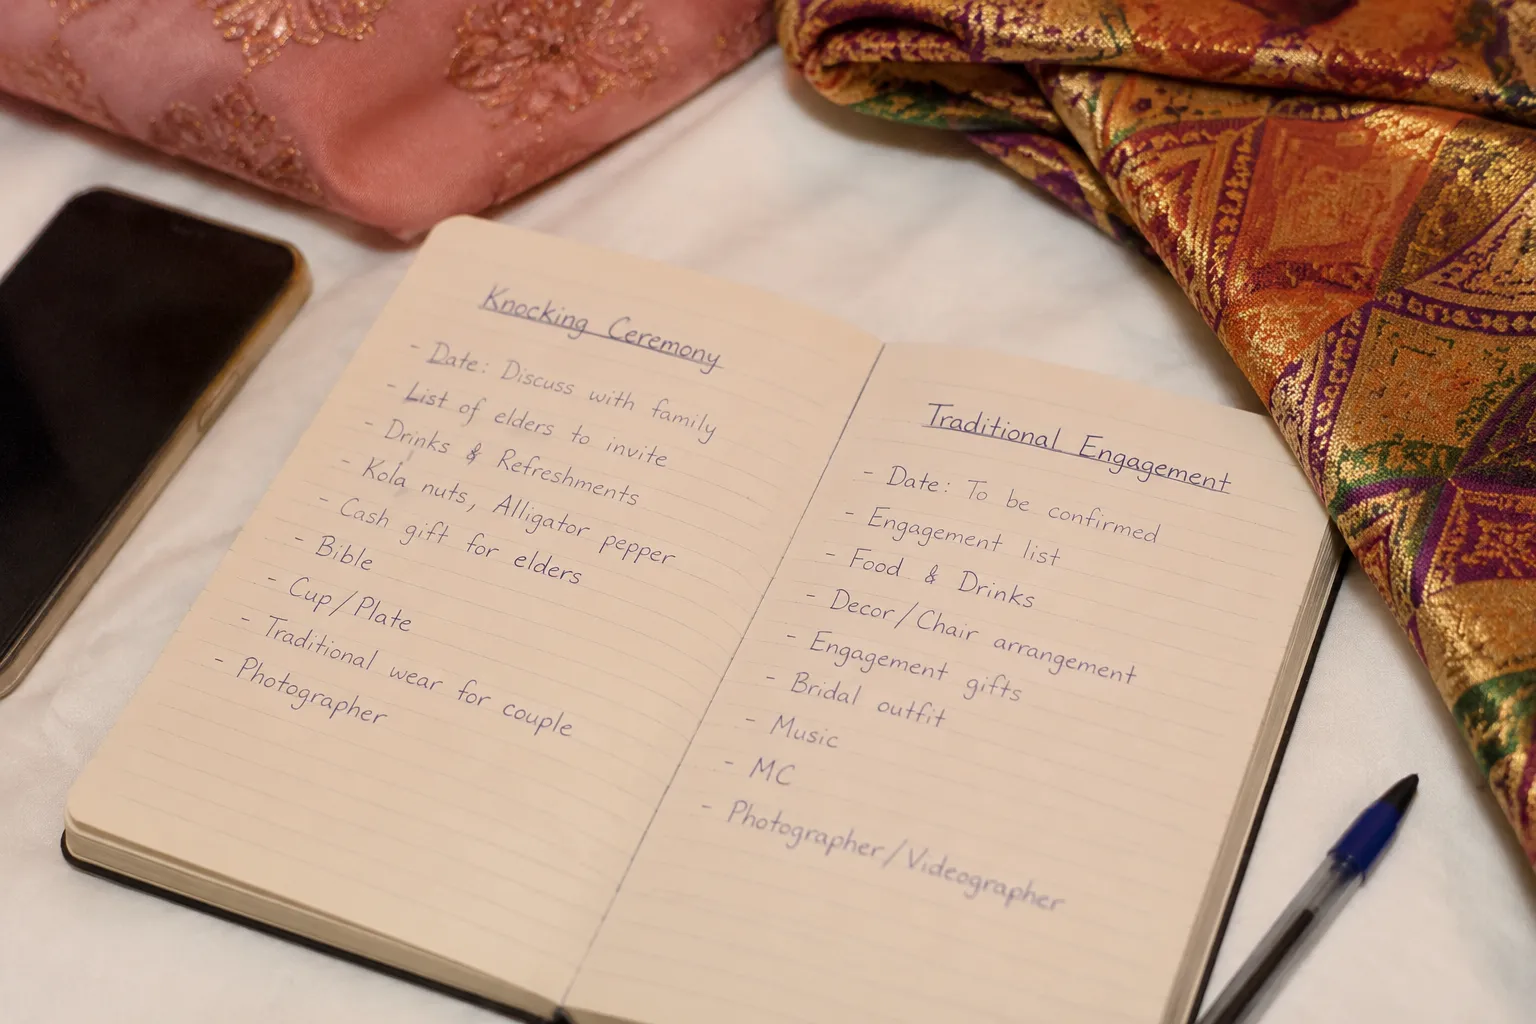 Knocking Ceremony
- Date: Discuss with family
- List of elders to invite
- Drinks & Refreshments
- Kola nuts, Alligator pepper
- Cash gift for elders
- Bible
- Cup/Plate
- Traditional wear for couple
- Photographer
Traditional Engagement
- Date: To be confirmed
- Engagement list
- Food & Drinks
- Decor/Chair arrangement
- Engagement gifts
- Bridal outfit
- Music
- MC
- Photographer/Videographer